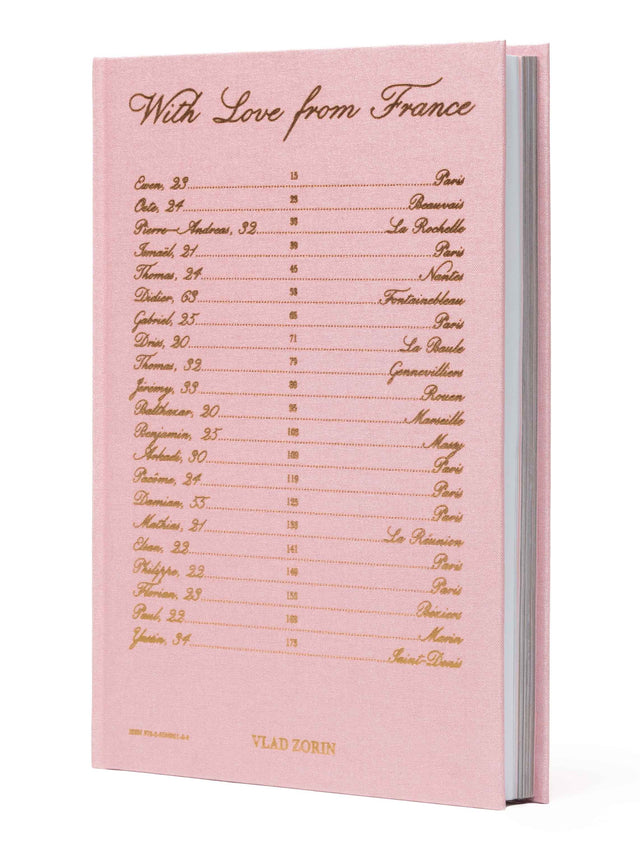 With Love from France
Ewen, 23 15 Paris
24 23 Beauvais
Pierre—Andreas, 32 33 La Rochelle
Ismaël, 21 39 Paris
Thomas, 24 45 Nantes
Didier, 63 53 Fontainebleau
Gabriel, 25 65 Paris
Driss, 20 71 La Baule
Thomas, 32 79 Gennevilliers
Jérémy, 33 Rouen
Balthazar, 20 95 Marseille
Benjamin, 25 103 Massy
Arkadi, 30 109 Paris
Pacôme, 24 119 Paris
Damian, 55 125 Paris
Mathias, 21 133 La Réunion
22 141 Paris
Philippe, 22 149 Paris
Florian, 23 Béziers
Paul, 22 163
Yassin, 34 173 Saint-Denis
ISBN
VLAD ZORIN